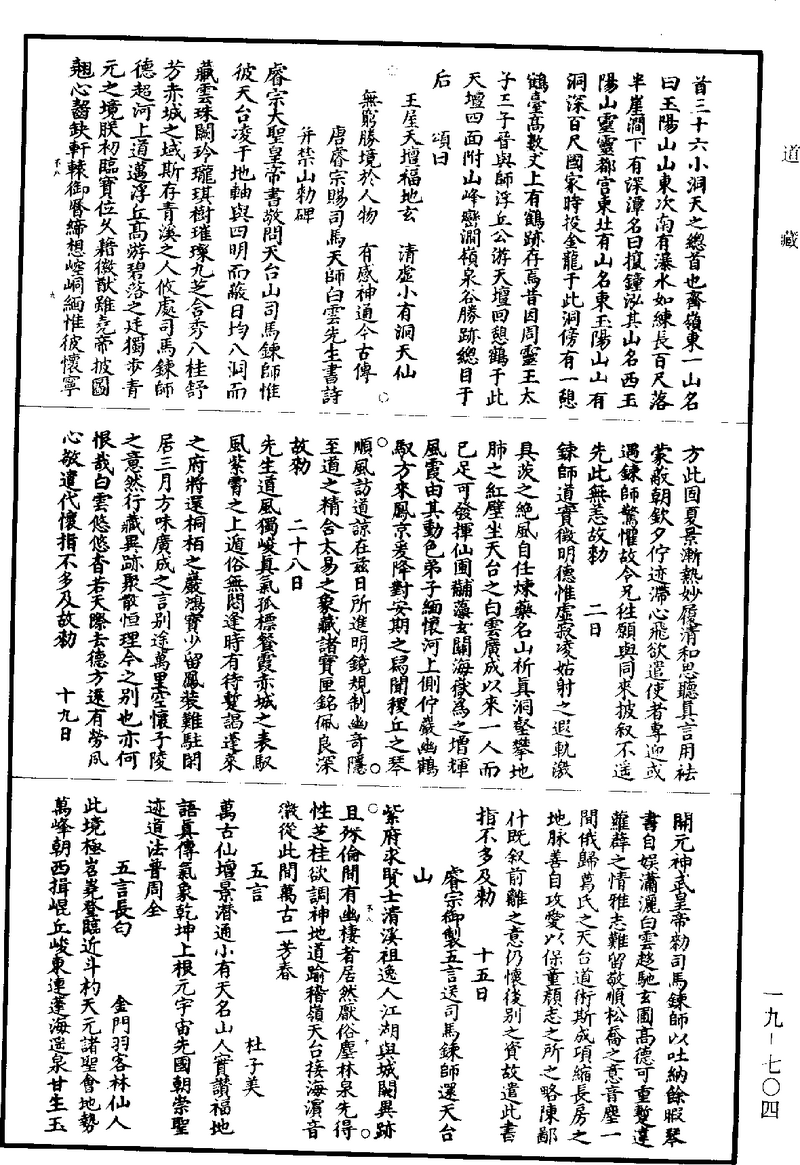 道藏
首三十六小洞天之總首也齊嶺東一山名
曰玉陽山山東次南有瀑水如練長百尺落
半崖澗下有深潭名曰擡鐘泓其山名西玉
陽山靈靈都宮東北有山名東玉陽山山有
洞深百尺國家時投金龍于此洞傍有一憩
鶴臺高數丈上有鶴跡存焉昔因周靈王太
子王子晉與師浮丘公游天壇回憩鶴于此
天壇四面附山峰巒澗嶺泉谷勝跡總目于
后 頌曰
王屋天壇福地玄 清虛小有洞天仙
無窮勝境於人物 有感神通今古傳
唐睿宗賜司馬天師白雲先生書詩
并禁山勑碑
睿宗大聖皇帝書敬問天台山司馬鍊師惟
彼天台凌于地軸與四明而蔽日均八洞而
藏雲珠闕玲瓏琪樹璀璨九芝含秀八桂舒
芳赤城之域斯存青溪之人攸處司馬鍊師
德超河上道邁浮丘高游碧落之廷獨步青
元之境朕初臨寶位久藉徽猷雖堯帝披圖
翹心齧缺軒轅御曆締想崆峒緬惟彼懷寧
方此固夏景漸熱妙履清和思聽真言用袪
蒙蔽朝欽夕佇迹滯心飛欲遣使者專迎或
遇鍊師驚懼故令兄往願與同來披叙不遥
先此無恙故勑 二日
鍊師道實徽明德惟虛寂凌姑射之遐軌激
具茨之絶風自任煉藥名山祈真洞壑攀地
肺之紅壁坐天台之白雲廣成以來一人而
已足可發揮仙圃黼藻玄關海嶽為之增輝
風霞由其動色弟子緬懷河上側佇巖幽鶴
馭方來鳳京爰降對安期之舄聞稷丘之琴
順風訪道諒在茲日所進明鏡規制幽奇隱
至道之精含太易之象藏諸寶匣銘佩良深
故勑 二十八日
先生道風獨峻真氣孤標餐霞赤城之表馭
風紫霄之上遁俗無悶逢時有待暫謁蓬萊
之府將還桐栢之巖鴻寶少留鳳裝難駐閑
居三月方味廣成之言别途萬里空懷子陵
之意然行藏異跡聚散恒理今之别也亦何
恨哉白雲悠悠杳若天際去德方遥有勞夙
心敬遣代懷指不多及故勑 十九日
開元神武皇帝勑司馬鍊師以吐納餘暇琴
書自娱瀟灑白雲趂馳玄圃高德可重蹔違
蘿薜之情雅志難留敬順松喬之意音塵一
間俄歸葛氏之天台道術斯成項縮長房之
地脉善自攻愛以保童顔志之所之略陳鄙
什既叙前離之意仍懷後别之資故遣此書
指不多及勑 十五日
睿宗御製五言送司馬鍊師還天台
山
紫府求賢士清溪祖逸人江湖與城闕異跡
且殊倫間有幽棲者居然厭俗塵林泉先得
性芝桂欲調神地道踰稽嶺天台接海濵音
徽從此間萬古一芳春
五言 杜子美
萬古仙壇景潜通小有天名山人實讃福地
語真傳氣象乾坤上根元宇宙先國朝崇聖
迹道法普周全
五言長句 金門羽客林仙人
此境極岧嶤登臨近斗杓天元諸聖會地勢
萬峰朝西揖崐丘峻東連蓬海遥泉甘生玉
一九-七〇四